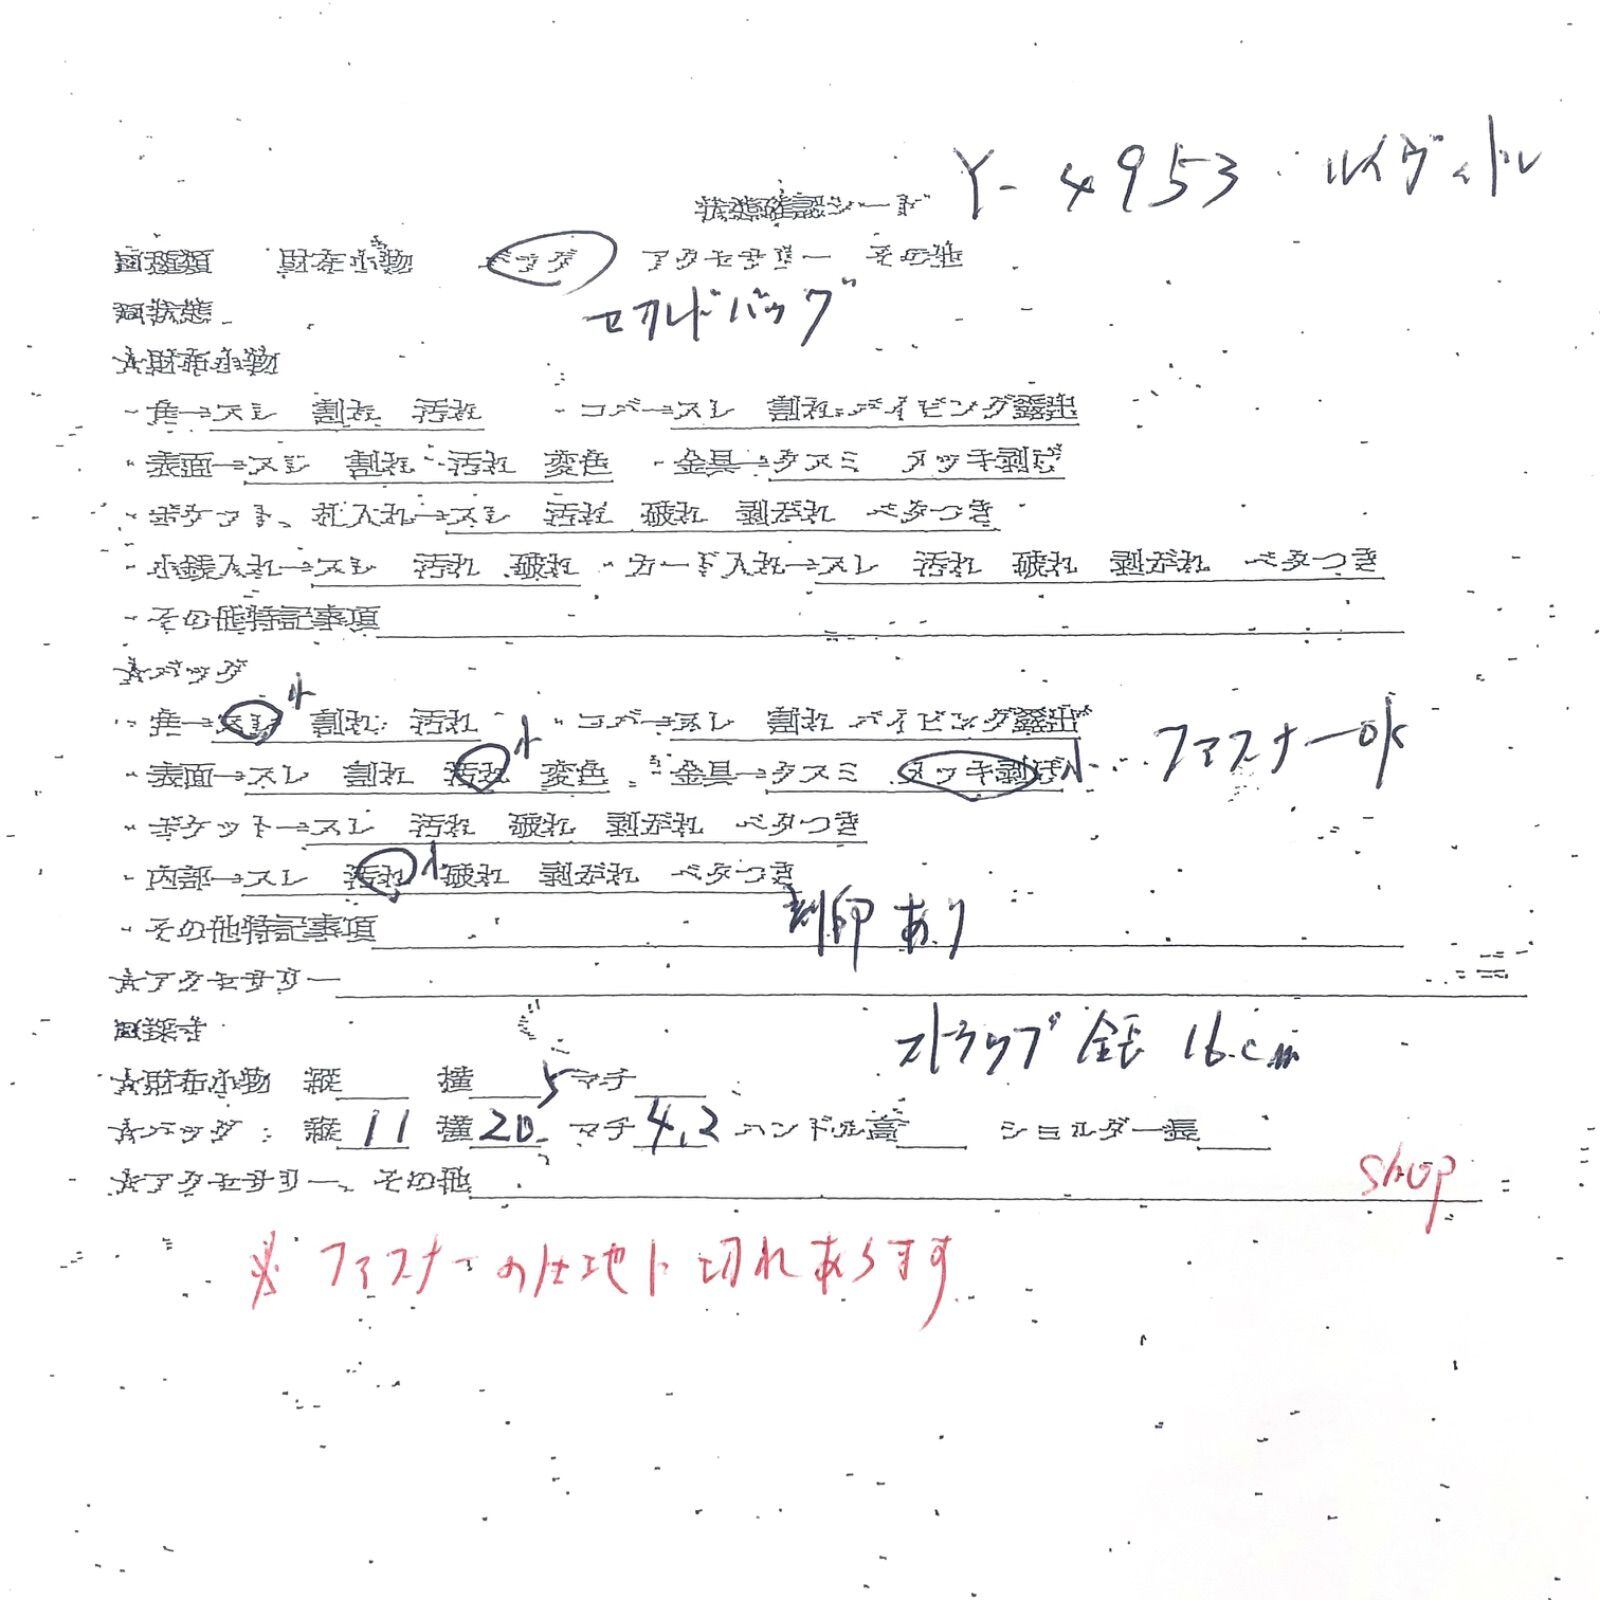 Y-4953 ルイヴィトン
状態確認シート
■種類 財布小物 バッグ アクセサリー その他
■状態 セカンドバッグ
★財布小物
・角→スレ 割れ 汚れ ・コバ→スレ 割れ パイピング露出
・表面→スレ 割れ 汚れ 変色 ・金具→クスミ メッキ剥げ
・ポケット、札入れ→スレ 汚れ 破れ 剥がれ ベタつき
・小銭入れ→スレ 汚れ 破れ ・カード入れ→スレ 汚れ 破れ 剥がれ ベタつき
・その他特記事項
★バッグ
・角→スレ小 割れ 汚れ ・コバ→スレ 割れ パイピング露出
・表面→スレ 割れ 汚れ小 変色 ・金具→クスミ メッキ剥げ小 ファスナーok
・ポケット→スレ 汚れ 破れ 剥がれ ベタつき
・内部→スレ 汚れ小 破れ 剥がれ ベタつき
・その他特記事項 刻印あり
★アクセサリー
■採寸 ストラップ 全長 16cm
★財布小物 縦 横 マチ
★バッグ: 縦 11 横 20.5 マチ 4.2 ハンドル高 ショルダー長
★アクセサリー、その他
SHOP
※ ファスナーの生地に切れあります